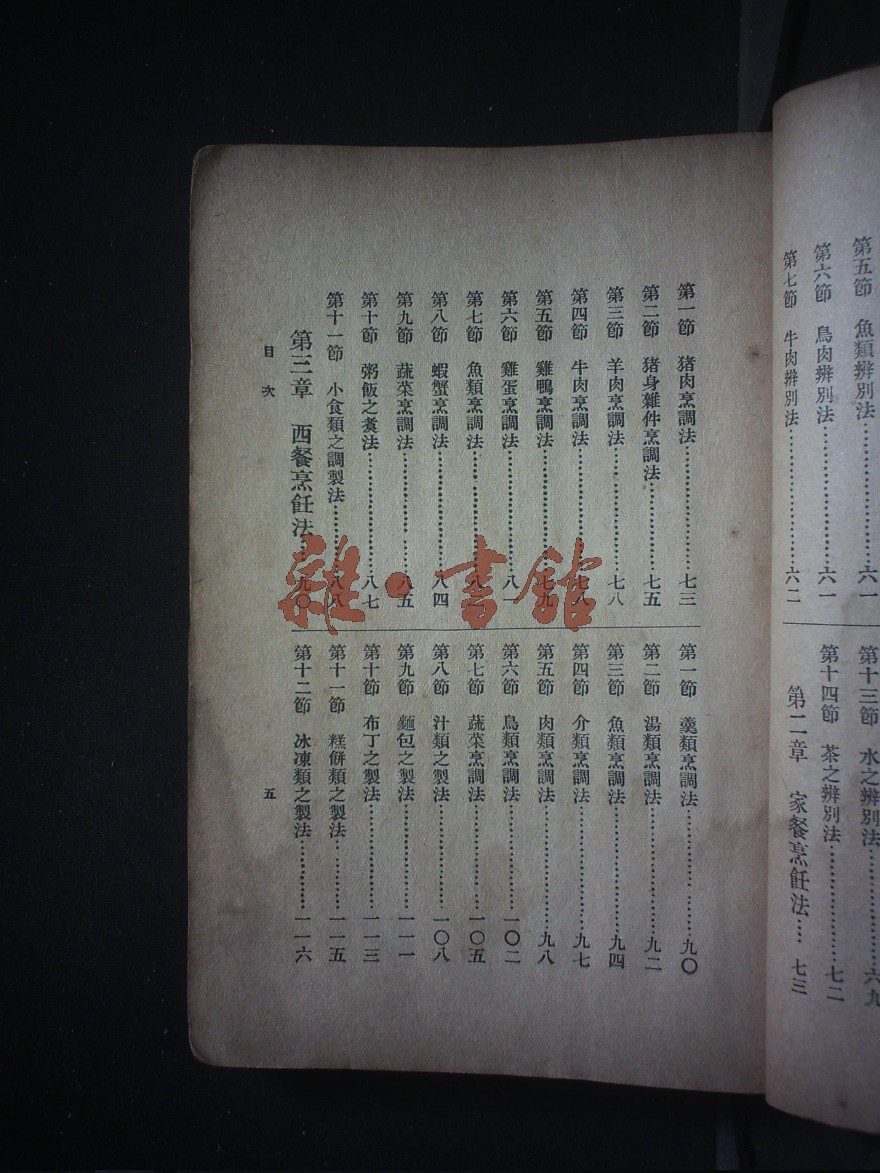 第五節　魚類辨別法⋯⋯⋯⋯六一
第六節　鳥肉辨別法⋯⋯⋯⋯六一
第七節　牛肉辨別法⋯⋯⋯⋯六二
第十三節　水之辨別法⋯⋯⋯⋯六九
第十四節　茶之辨別法⋯⋯⋯⋯七二
第二章　家餐烹飪法⋯⋯七三
第一節　猪肉烹調法⋯⋯⋯⋯七三
第二節　猪身雜件烹調法⋯⋯⋯⋯七五
第三節　羊肉烹調法⋯⋯⋯⋯七八
第四節　牛肉烹調法⋯⋯⋯⋯七八
第五節　雞鴨烹調法⋯⋯⋯⋯七九
第六節　雞蛋烹調法⋯⋯⋯⋯八一
第七節　魚類烹調法⋯⋯⋯⋯八
第八節　蝦蟹烹調法⋯⋯⋯⋯八四
第九節　蔬菜烹調法⋯⋯⋯⋯八五
第十節　粥飯之煑法⋯⋯⋯⋯八七
第十一節　小食類之調製法⋯⋯⋯⋯八八
第三章　西餐烹飪法⋯⋯九〇
第一節　羹類烹調法⋯⋯⋯⋯九〇
第二節　湯類烹調法⋯⋯⋯⋯九二
第三節　魚類烹調法⋯⋯⋯⋯九四
第四節　介類烹調法⋯⋯⋯⋯九七
第五節　肉類烹調法⋯⋯⋯⋯九八
第六節　鳥類烹調法⋯⋯⋯⋯一〇二
第七節　蔬菜烹調法⋯⋯⋯⋯一〇五
第八節　汁類之製法⋯⋯⋯⋯一〇八
第九節　麵包之製法⋯⋯⋯⋯一一一
第十節　布丁之製法⋯⋯⋯⋯一一三
第十一節　糕餅類之製法⋯⋯⋯⋯一一五
第十二節　冰凍類之製法⋯⋯⋯⋯一一六
目次
五
雜·書館